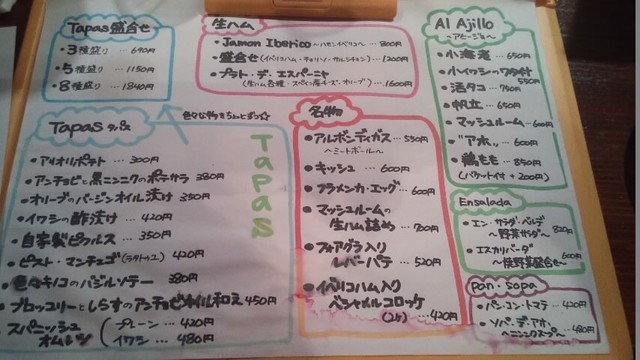 Tapas 盛合せ
・3種盛り … 690円
・5種盛り … 1150円
・8種盛り … 1840円
色々なものをちょっとずつ☆
生ハム
・Jamon Iberico ~ハモンイベリコ~ … 800円
・盛合せ (イベリコハム・チョリソ・サルシチョン) … 1200円
・プラト・デ・エスパーニャ
(生ハム各種・スペイン産チーズ、オリーブ) … 1600円
Al Ajillo
~アヒージョ~
・小海老 … 650円
・小イワシのワタ付 550円
・活タコ … 750円
・帆立 … 650円
・マッシュルーム … 600円
・"アホ" … 600円
・鶏もも … 850円
(バケット付 +200円)
Tapas タパス
・アリオリポテト … 300円
・アンチョビと黒ニンニクのポテサラ 380円
・オリーブのバージンオイル漬け 350円
・イワシの酢漬け … 420円
・自家製ピクルス … 350円
・ピスト・マンチェゴ (ラタトゥユ) 420円
・色々キノコのバジルソテー 380円
・ブロッコリーとしらすのアンチョビオイル和え 450円
スパニッシュオムレツ
プレーン … 420円
イワシ … 480円
Tapas
名物
・アルボンディガス … 550円
~ミートボール~
・キッシュ … 600円
・フラメンカ・エッグ … 600円
・マッシュルームの
生ハム詰め … 700円
・フォアグラ入り
レバーパテ … 520円
・イベリコハム入り
ベシャメルコロッケ
(2ケ) … 420円
Ensalada
・エン・サラダ・ベルデ
~野菜サラダ~ 820円
・エスカリバーダ
~焼野菜盛合せ~ 600円
pan・sopa
・パン・コン・トマテ … 420円
・ソパ・デ・アホ
~ニンニクスープ~ … 480円